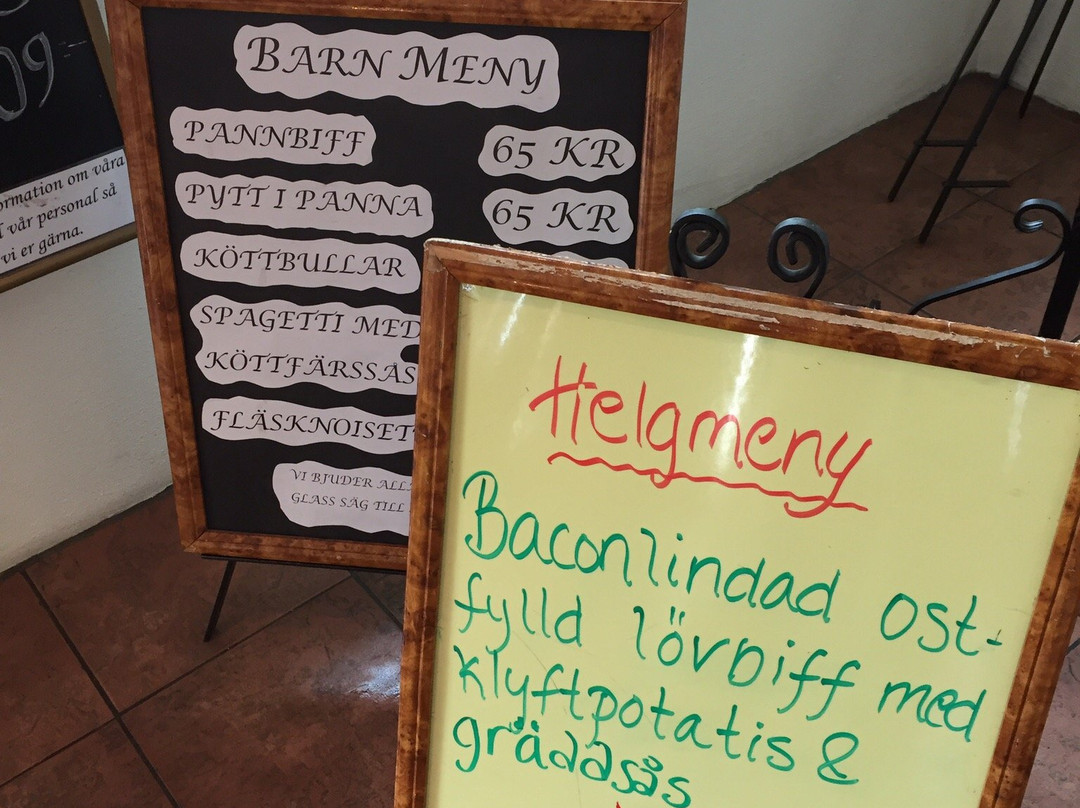 09
ormation om våra
vår personal så
vi er gärna.
BARN MENY
PANNBIFF 65 KR
PYTT I PANNA 65 KR
KÖTTBULLAR
SPAGETTI MED
KÖTTFÄRSSÅS
FLÄSKNOISET
VI BJUDER ALL
GLASS SÄG TILL
Helgmeny
Baconlindad ost-
fylld lövbiff med
klyftpotatis &
gräddsås